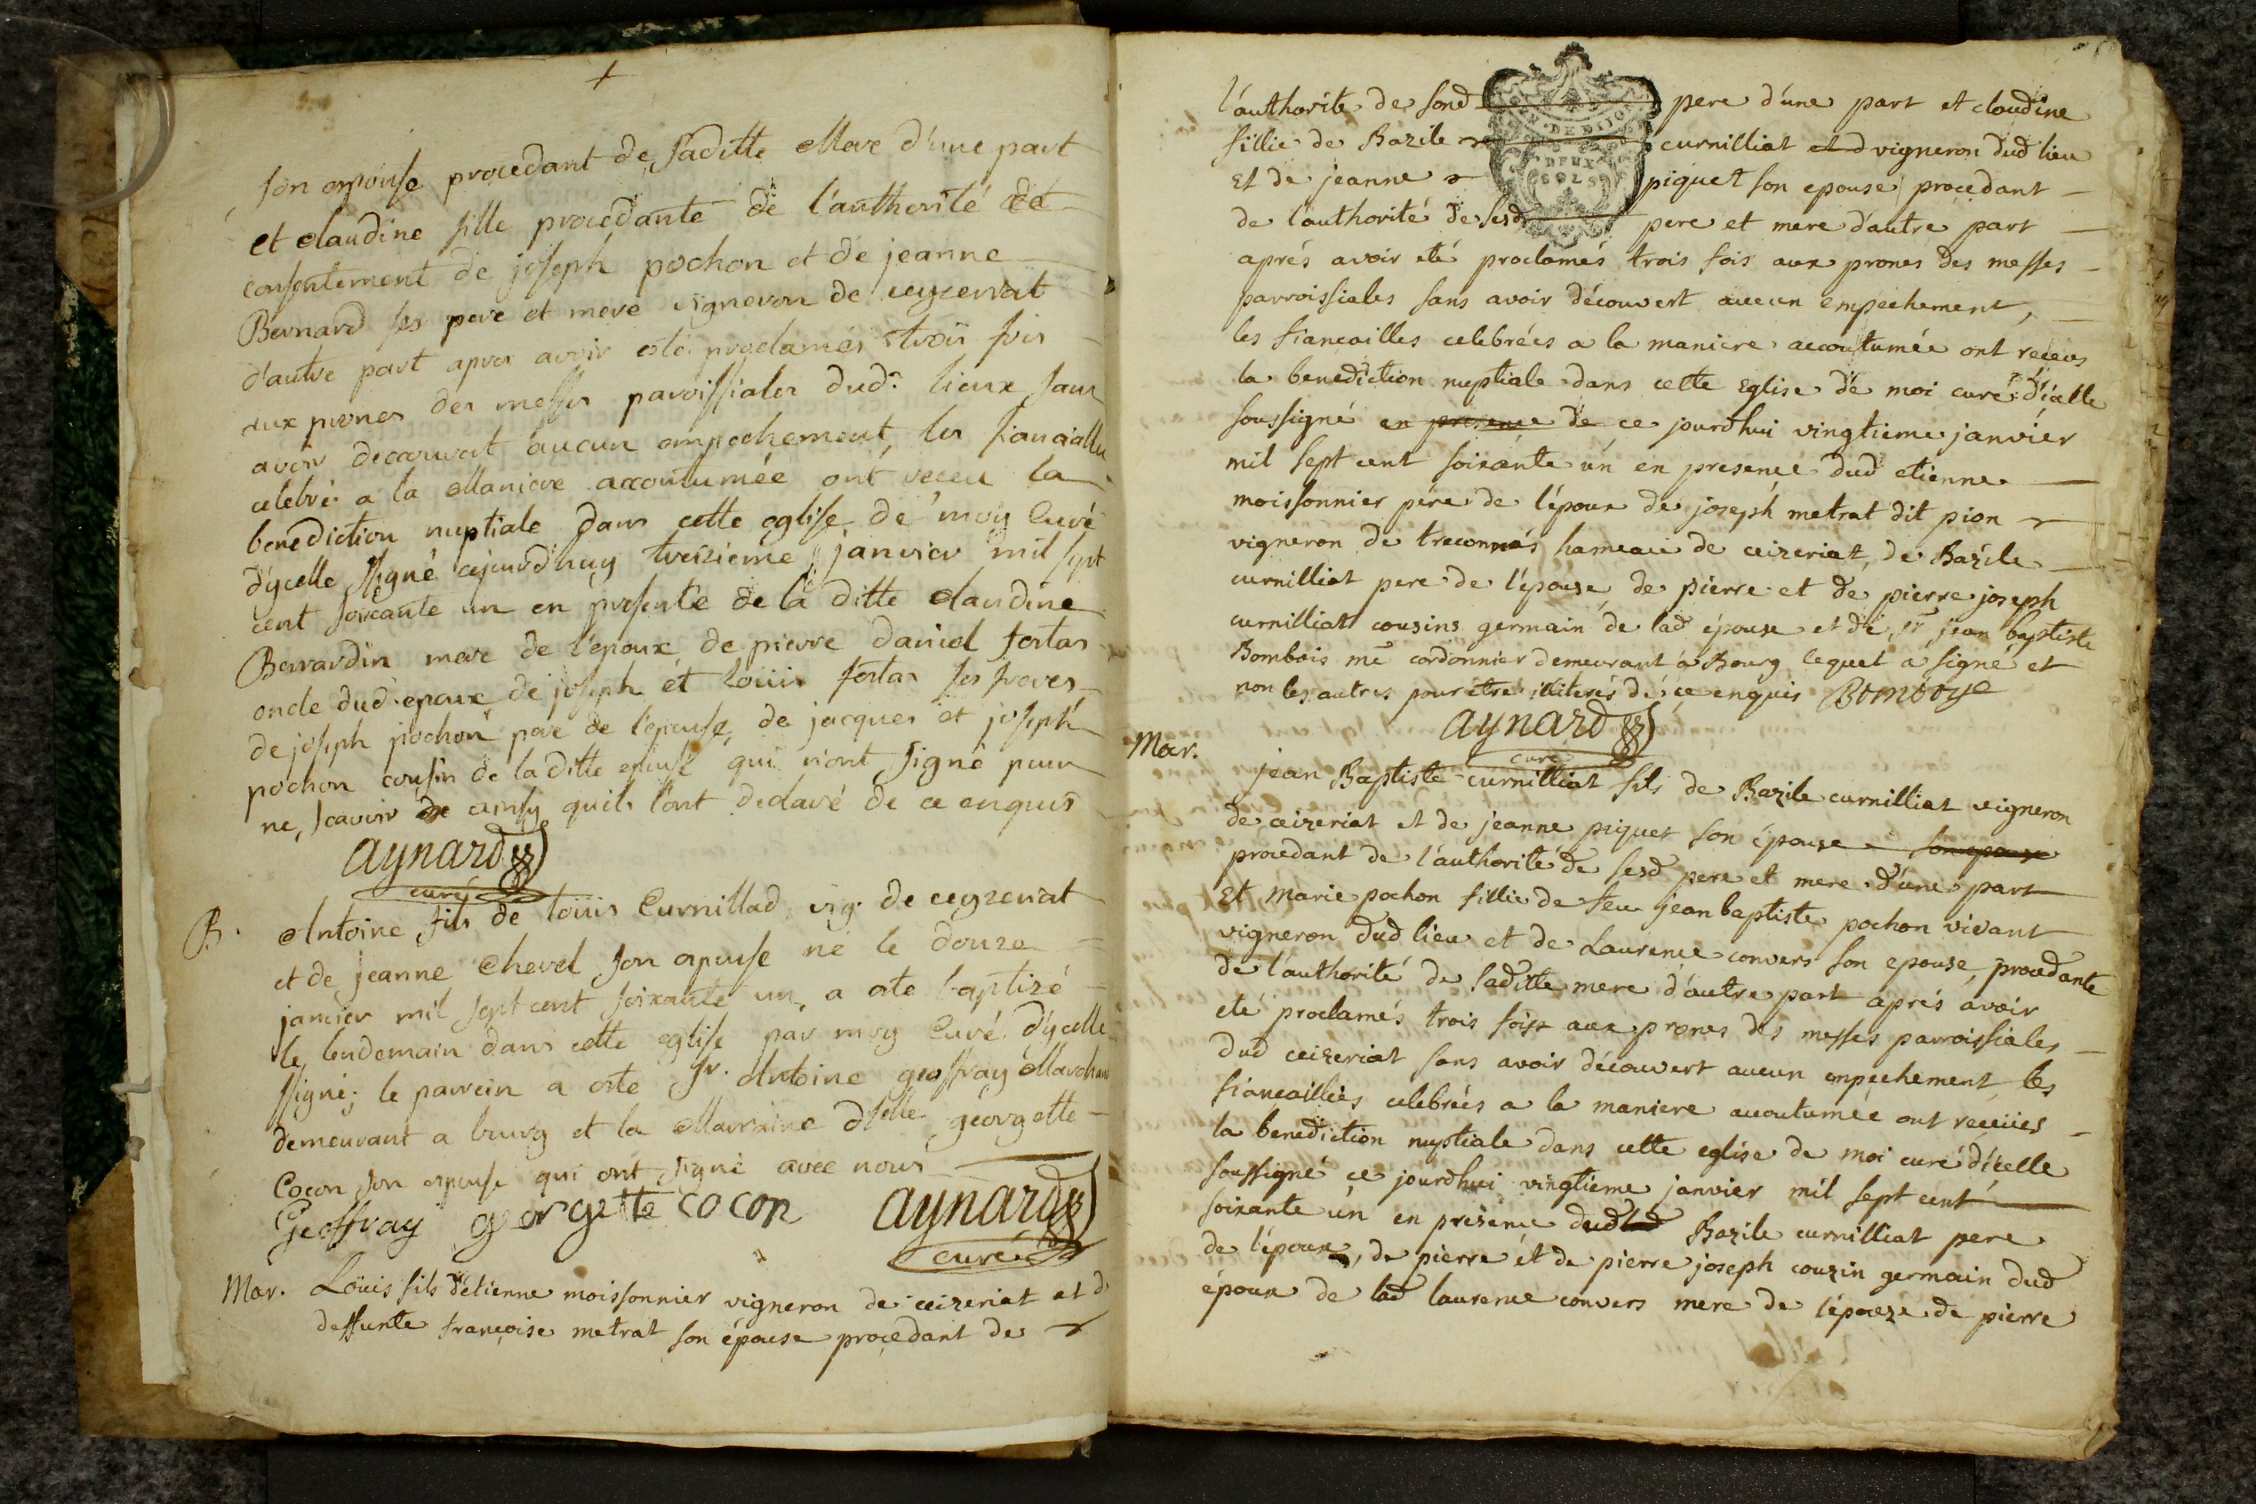 son epouse procedant de saditte Mere d'une part
et claudine fille procedante de l'authorité et
consentement de joseph pochon et de jeanne
Bernard ses pere et mere vigneron de ceyzeriat
d'autre part apres avoir esté proclamés trois fois
aux prones des messes paroissiales dud. lieux sans
avoir decouvert aucun empechement, les fiancailles
celebré a la Maniere accoutumée ont receu la
benediction nuptiale dans cette eglise de moy Curé
d'ycelle ssigné cejourd'huy treizieme janvier mil sept
cent soixante un en presente de la ditte claudine
Bernardin mere de l'epoux de pierre daniel fortas
oncle dud. epoux de joseph et loüis fortas ses freres
de joseph pochon pere de l'epouse, de jacques et joseph
pochon cousin de la ditte epouse qui n'ont signé pour
ne scavoir de ainsy quils l'ont declaré de ce enquis
aynard
curé
B. Antoine fils de loüis Curnillad vig. de ceyzeriat
et de jeanne Chevel son epouse né le douze
janvier mil sept cent soixante un a este baptizé
le lendemain dans cette eglise par moy Curé d'ycelle
ssigné; le parrein a este Sr. Antoine geoffray Marchand
demeurant a bourg et la Marraine dlle georgette
Cocon son epouse qui ont signé avec nous
Geoffray georgette cocon aynard
curé
Mar. Loüis fils d'etienne moissonnier vigneron de ceizeriat et d
deffunte françoise metrat son épouse procedant de
l'authorite de sond pere d'une part et claudine
fillie de Bazile curnilliat et d vigneron dud lieu
Et de jeanne piquet son epouse procedant
de l'authorité de sesd pere et mere d'autre part
aprés avoir eté proclamés trois fois aux prones des messes
parroissiales sans avoir découvert aucun empechement,
les fiancailles celebrées a la maniere accoutumée ont receus
la benediction nuptiale dans cette Eglise de moi curé d'icelle
soussigné en presence de ce jourdhui vingtieme janvier
mil sept cent soixante un en presence dud etienne
moissonnier pére de l'époux de joseph metrat dit pion
vigneron de treconnas hameau de ceizeriat, de Bazile
curnilliat pere de l'épouse, de pierre et de pierre joseph
curnilliat cousins germain de lad épouse et de sr jean baptiste
Bombois me cordonnier demeurant a Bourg lequel a signé et
non les autres pour être illiterés de ce enquis Bomboye
aynard
curé
Mar. jean Baptiste curnilliat fils de Bazile curnilliat vigneron
de ceizeriat et de jeanne piquet son épouse son epouse
procedant de l'authorité de sesd pere et mere d'une part
Et Marie pochon fillie de feu jean baptiste pochon vivant
vigneron dud lieu et de Laurence convers son epouse, procedante
de l'authorité de saditte mere d'autre part aprés avoir
eté proclamés trois fois aux prones des messes parroissiales
dud ceizeriat sans avoir découvert aucun empechement les
fiancailles celebrées a la maniere accoutumée ont receües
la benediction nuptiale dans cette eglise de moi curé d'icelle
soussigné ce jourdhui vingtieme janvier mil sept cent
soixante un en presence dud Bazile curnilliat pere
de l'époux, de pierre et de pierre joseph couzin germain dud
époux de lad laurence convers mere de l'épouze de pierre
GEN. DE DIJON
DEUX
SOLS